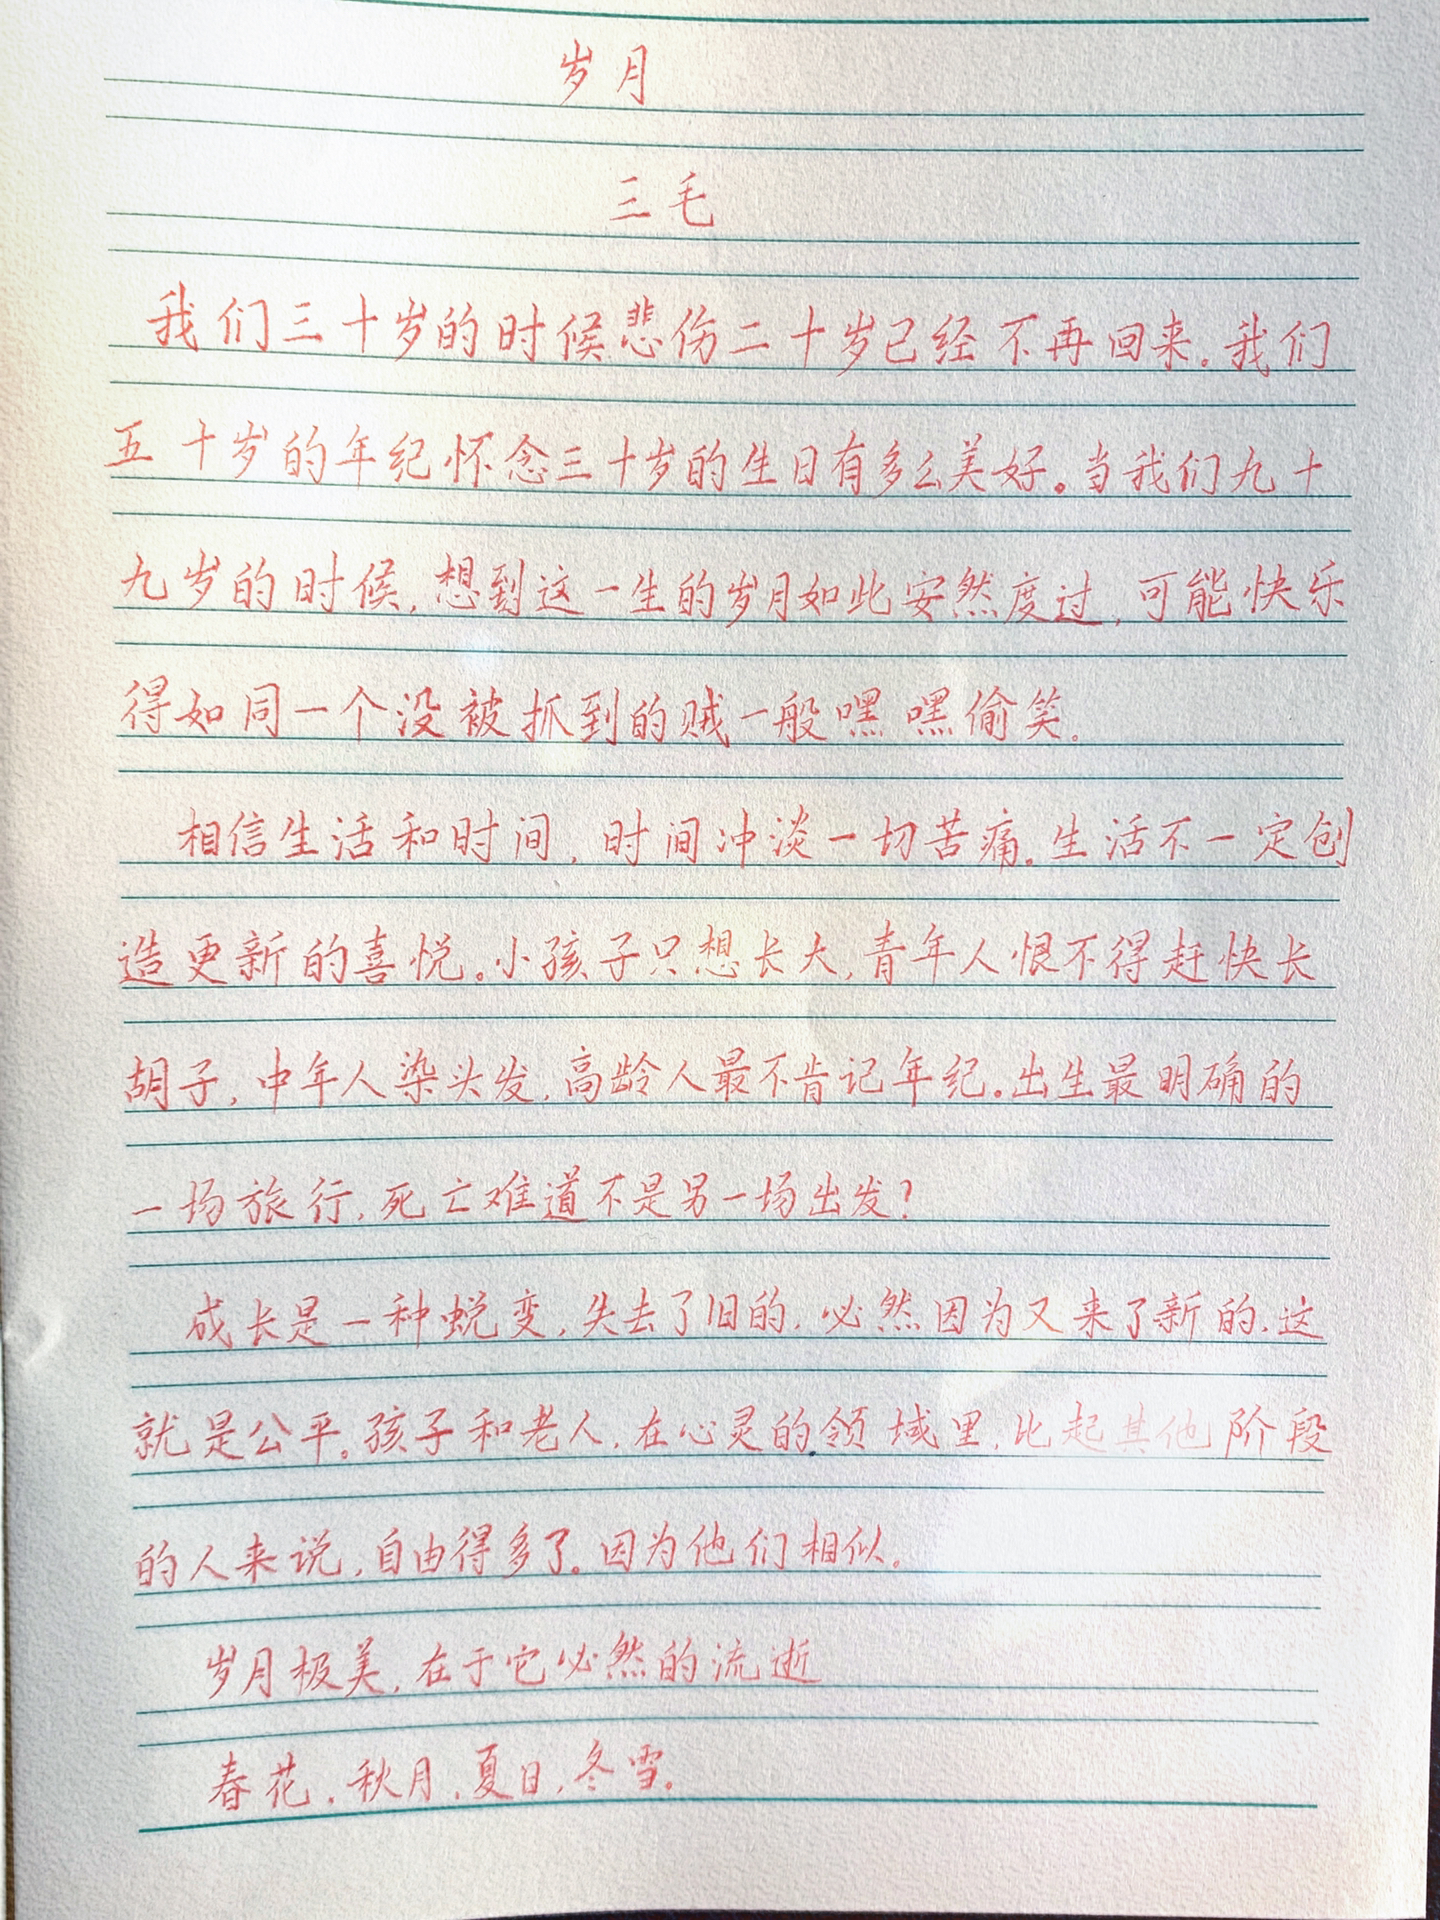 岁月
三毛
我们三十岁的时候悲伤二十岁已经不再回来。我们
五十岁的年纪怀念三十岁的生日有多么美好。当我们九十
九岁的时候,想到这一生的岁月如此安然度过,可能快乐
得如同一个没被抓到的贼一般嘿嘿偷笑。
相信生活和时间,时间冲淡一切苦痛。生活不一定创
造更新的喜悦。小孩子只想长大,青年人恨不得赶快长
胡子,中年人染头发,高龄人最不肯记年纪。出生最明确的
一场旅行,死亡难道不是另一场出发?
成长是一种蜕变,失去了旧的,必然因为又来了新的,这
就是公平。孩子和老人,在心灵的领域里,比起其他阶段
的人来说,自由得多了。因为他们相似。
岁月极美,在于它必然的流逝
春花,秋月,夏日,冬雪。